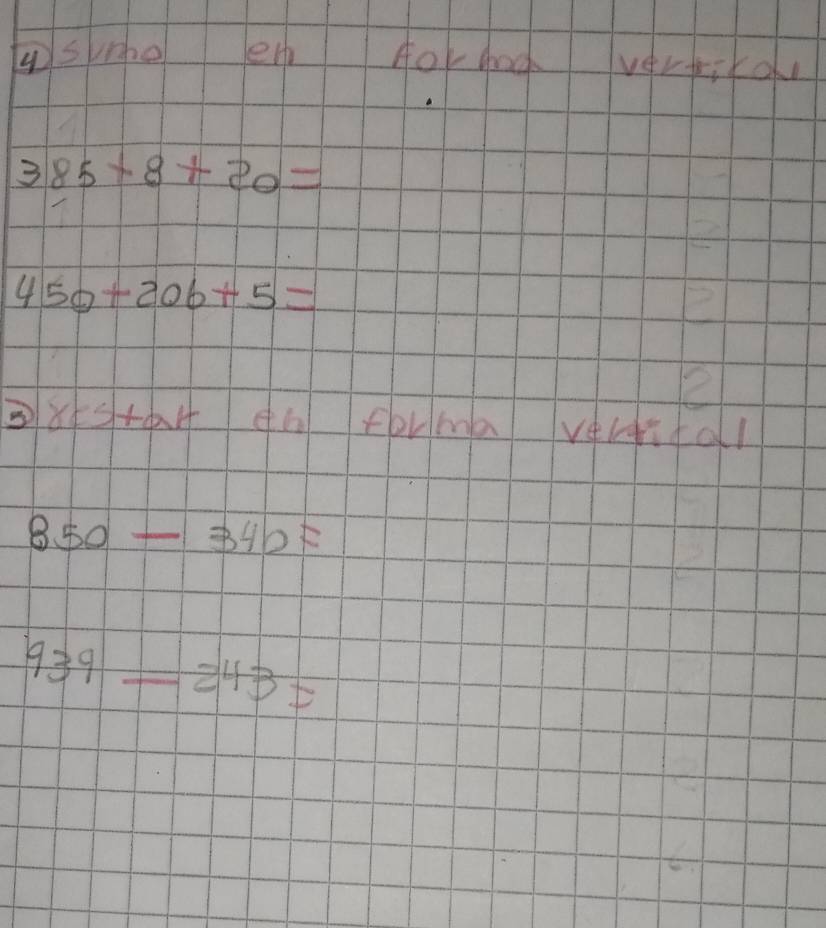 4) sumo en forma vertical
385 + 8 + 20 =
450 + 206 + 5 =
5) restar en forma vertical
850 - 340 =
939 - 243 =